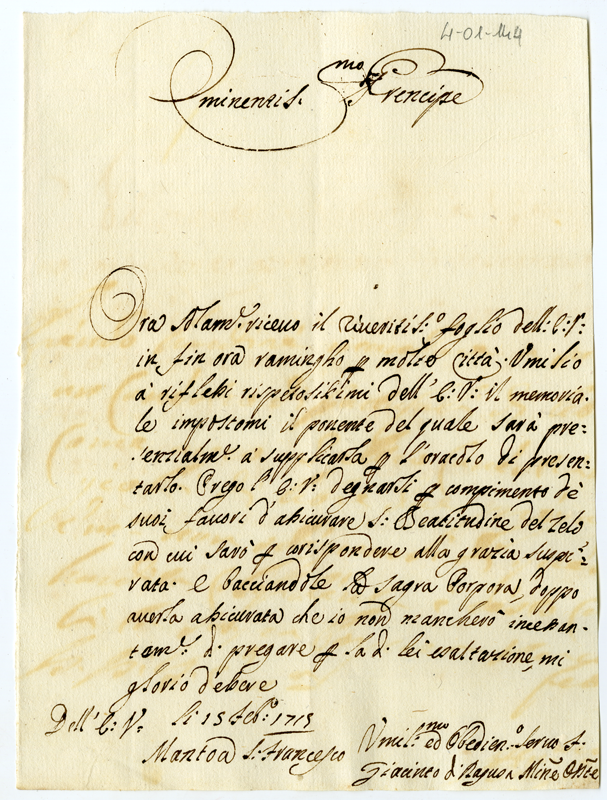 4-01-144
Eminentis.mo Prencipe
Ora solam.e riceuo il riueritis.o foglio dell: E: V:
in fin ora ramingho p molte Città. Vmilio
à riflessi rispetosissimi dell' E: V: il memoria-
le impostomi il ponente del quale sarà pre-
senzialm.e a supplicarla p l'oracolo di presen-
tarlo. Prego l' E: V: degnarsi p compimento de
suoi fauori d'assicurare S: Beatitudine del zelo
con cui sarò p corispondere alla grazia suspi-
rata. E bacciandole la sagra Porpora, doppo
auerla assicurata che io non mancherò incessan-
tem.e di pregare p la di lei esaltazione, mi
glorio d'essere
Dell' E: V: li 15 Feb.o 1715
Mantoa S: Francesco
Vmilis.mo ed Obedien.o Seruo F.
Giacinto di Ragusa Min.e Oss.te